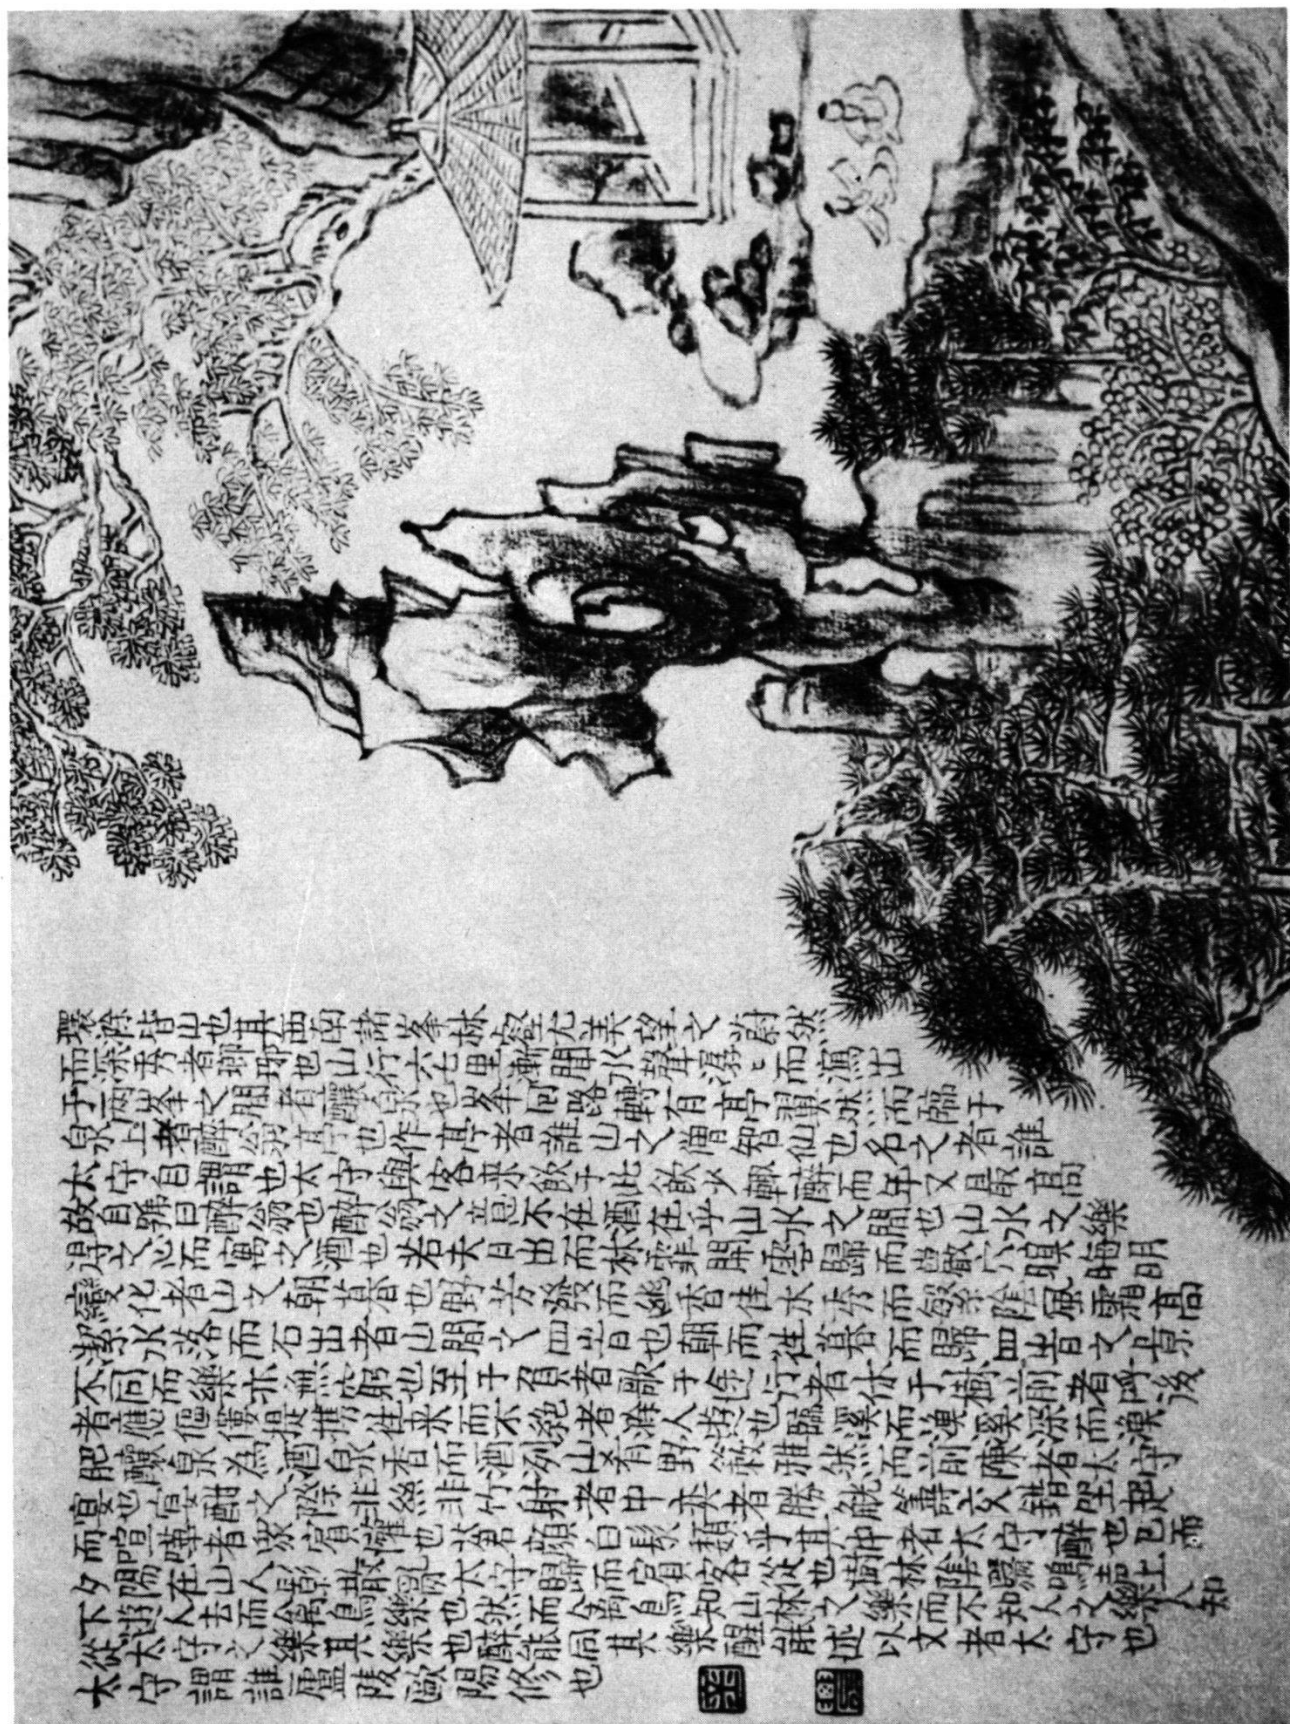 環滁皆山也其西南諸峯林壑尤美望之蔚然
而深秀者瑯琊也山行六七里漸聞水聲潺〻而瀉出
于兩峯之間者釀泉也峯回路轉有亭翼然而臨于
泉上者醉翁亭也作亭者誰山之僧智仙也名之者誰
太守自謂也太守與客來飲于此飲少輒醉而年又最高
故自號曰醉翁也醉翁之意不在酒在乎山水之間也山水之樂
得之心而寓之酒也若夫日出而林霏開雲歸而巖穴暝晦明
變化者山之朝暮也野芳發而幽香佳木秀而繁陰風霜高
潔水落而石出者山間之四時也朝而往暮而歸四時之景
不同而樂亦無窮也至于負者歌于途行者休于樹前者呼後
者應傴僂提攜往來而不絕者滁人遊也臨溪而漁溪深而漁
肥釀泉為酒泉香而酒洌山肴野蔌雜然而前陳者太守
宴也宴酣之樂非絲非竹射者中奕者勝觥籌交錯坐起
而喧譁者眾賓懽也蒼顏白髮頹乎其中者太守醉也已而
夕陽在山人影散亂太守歸而賓客從也樹林陰翳鳴聲上
下遊人去而禽鳥樂也然而禽鳥知山林之樂而不知人之樂人知
從太守遊而樂其樂也醉能同其樂醒能述以文者太守也
太守謂誰廬陵歐陽修也